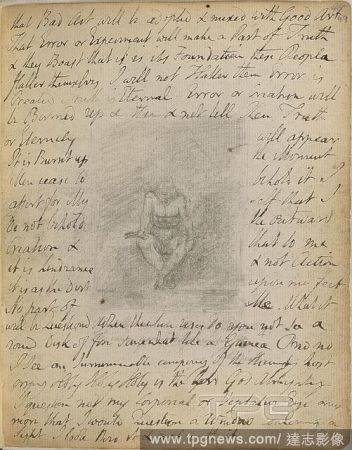 that Bad Art will be adopted & mixed with Good Art
That Error or Experiment will make a Part of Truth
& they Boast that it is its Foundation these People
Flatter themselves I will not Flatter them Error is
Created Truth is Eternal Error or Creation will
be Burned up & then & not till then Truth
or Eternity will appear
It is Burnt up the Moment
Men cease to behold it I
assert for My self that I
do not behold the outward
Creation & that to me
it is hindrance & not Action
it is as the Dirt upon my feet
No part of Me. What it
will be Questiond When the Sun rises do you not See a
round Disk of fire somewhat like a Guinea O no no
I See an Innumerable company of the Heavenly host
crying Holy Holy Holy is the Lord God Almighty
I question not my Corporeal or Vegetative Eye any
more than I would Question a Window concerning a
Sight I look thro it &
TPG
www.tpgnews.com / 達志影像